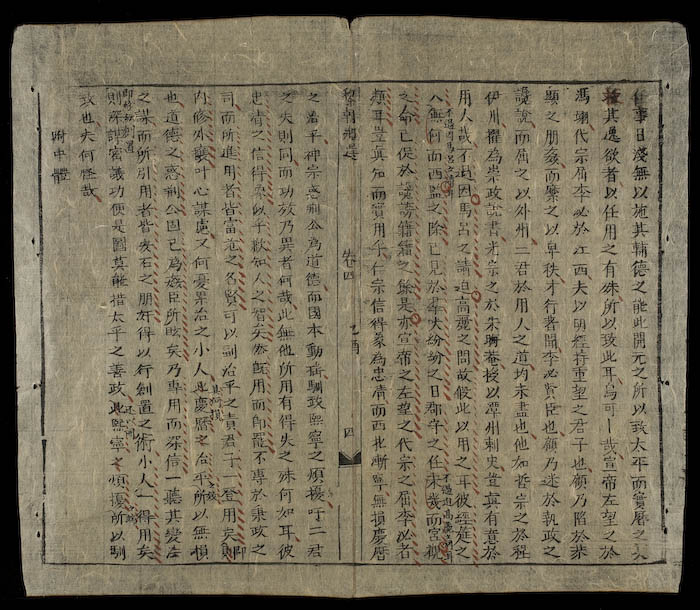 任事日淺無以施其輔德之能此開元之所以致太平而寶曆之
其愚欲者以任用之有殊所以致此耳烏可一哉宣帝左望之於
馮翊代宗屈李必於江西夫以明經持重望之君子也顧乃陷於恭
顯之朋姦而棄之以卑秩才行著聞李必賢臣也顧乃迷於執政之
讒說而屈之以外州二君於用人之道均未盡也他如哲宗之於程
伊川擢為崇政說書光宗之於朱晦菴授以潭州刺史豈真有意於
用人哉不過因馬呂之請迫高麗之問故假此以用之耳彼經筵之
入無何而西監之除已見於羣犬紛紛之日郡守之任未幾而宮
之命已促於讒謗籍籍之餘是亦宣帝之左望之代宗之屈李必者
類耳豈真知而實用乎仁宗信得象為忠清而西北漸寧無損慶曆
卷四 乙酉 四
之治乎神宗惑荊公為道德而國本動搖馴致熙寧之煩擾吁二君
之失則同而功效乃異者何哉此無他所用有得失之殊何如耳彼
忠清之信得象似乎歉知人之智矣然既用而即罷不專於秉政之
司而所進用者皆富范之名賢可以副治平之責君子一登用矣則
內修外攘叶心謀慮又何憂累治之小人此慶曆之治平所以無損
也道德之惑荊公固已為姦臣所眩矣乃專用而深信一聽其變法
之謀而所引用者皆安石之朋奸得以行創置之術小人一得用矣
則深謀密議功便是圖莫能措太平之善政此熙寧之煩擾所以馴
致也夫何怪哉
附中體